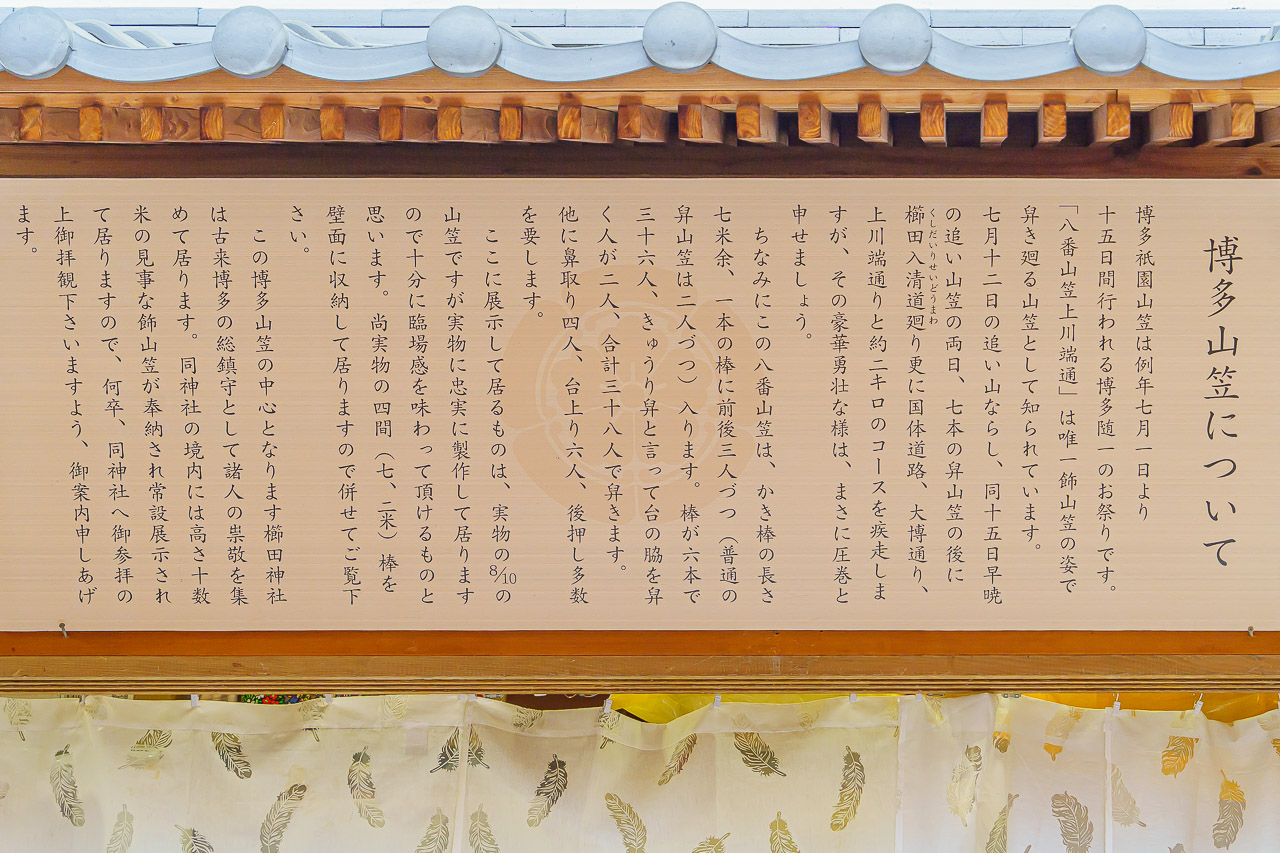 博多山笠について
博多祇園山笠は例年七月一日より
十五日間行われる博多随一のお祭りです。
「八番山笠上川端通」は唯一飾山笠の姿で
舁き廻る山笠として知られています。
七月十二日の追い山ならし、同十五日早暁
の追い山笠の両日、七本の舁山笠の後に
櫛田入清道廻り更に国体道路、大博通り、
くしだいりせいどうまわ
上川端通りと約二キロのコースを疾走しま
すが、その豪華勇壮な様は、まさに圧巻と
申せましょう。
ちなみにこの八番山笠は、かき棒の長さ
七米余、一本の棒に前後三人づつ（普通の
舁山笠は二人づつ）入ります。棒が六本で
三十六人、きゅうり舁と言って台の脇を舁
く人が二人、合計三十八人で舁きます。
他に鼻取り四人、台上り六人、後押し多数
を要します。
ここに展示して居るものは、実物の8/10の
山笠ですが実物に忠実に製作して居ります
ので十分に臨場感を味わって頂けるものと
思います。尚実物の四間（七、二米）棒を
壁面に収納して居りますので併せてご覧下
さい。
この博多山笠の中心となります櫛田神社
は古来博多の総鎮守として諸人の崇敬を集
めて居ります。同神社の境内には高さ十数
米の見事な飾山笠が奉納され常設展示され
て居りますので、何卒、同神社へ御参拝の
上御拝観下さいますよう、御案内申しあげ
ます。